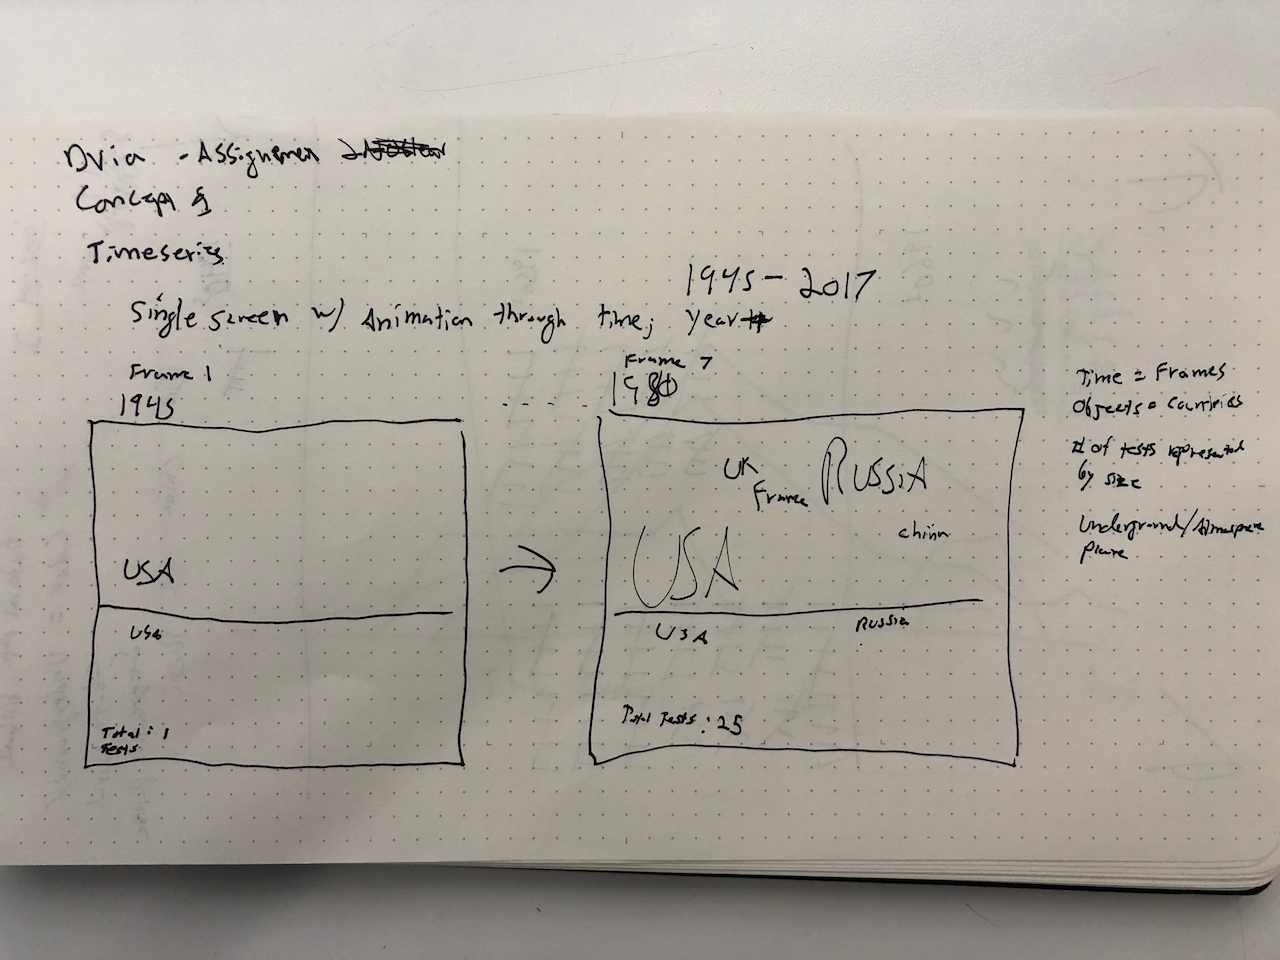 Dvia - Assignemen 2
Concept
Timeseries
1945 - 2017
Single screen w/ Animation through time; year
Frame 1
1945
Frame 7
1980
USA
USA
Total : 1
Tests
UK
France
RUSSIA
China
USA
USA
Russia
Total Tests : 25
Time = Frames
Objects = Countries
# of tests represented
by size
Underground/Atmosphere